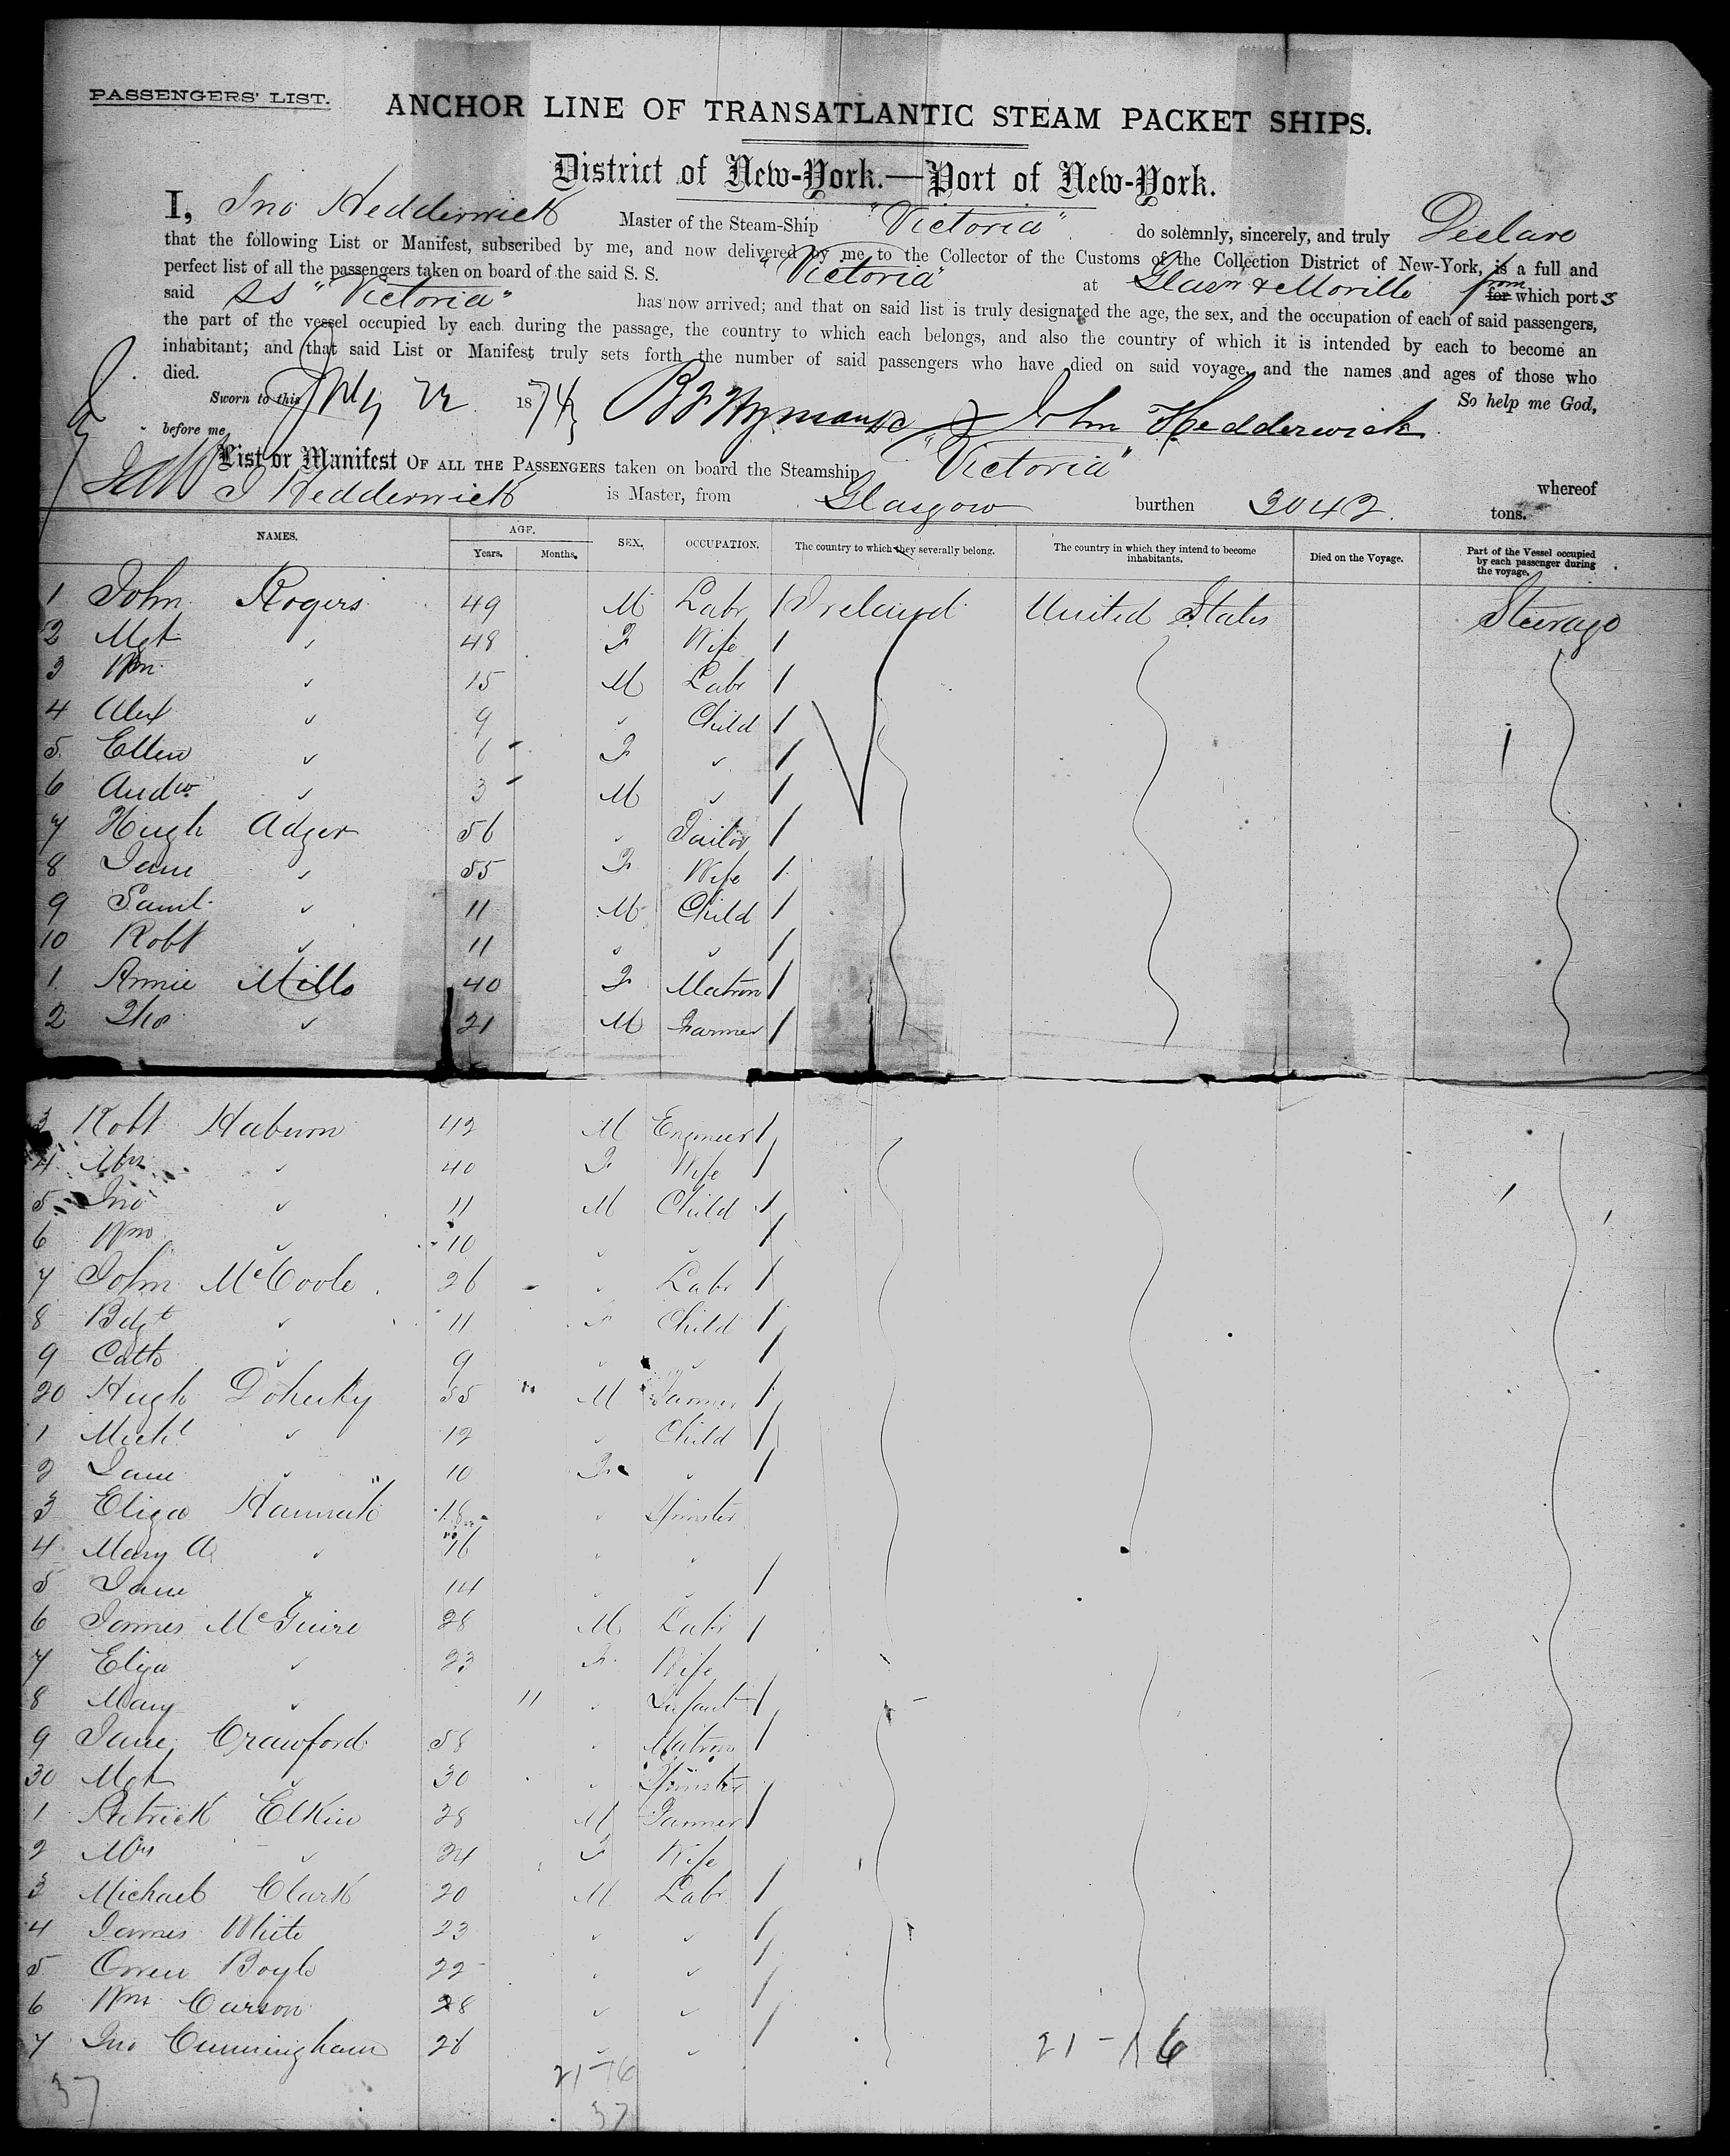 PASSENGERS' LIST.
ANCHOR LINE OF TRANSATLANTIC STEAM PACKET SHIPS.
District of New-York.—Port of New-York.
I, Jno Hedderwick Master of the Steam-Ship "Victoria" do solemnly, sincerely, and truly Declare
that the following List or Manifest, subscribed by me, and now delivered by me to the Collector of the Customs of the Collection District of New-York, is a full and
perfect list of all the passengers taken on board of the said S. S. "Victoria" at Glasgow & Moville from for which port s
said SS "Victoria" has now arrived; and that on said list is truly designated the age, the sex, and the occupation of each of said passengers,
the part of the vessel occupied by each during the passage, the country to which each belongs, and also the country of which it is intended by each to become an
inhabitant; and that said List or Manifest truly sets forth the number of said passengers who have died on said voyage, and the names and ages of those who
died.
So help me God,
Sworn to this July 22 1874 John Hedderwick
before me
List or Manifest OF ALL THE PASSENGERS taken on board the Steamship "Victoria" whereof
J Hedderwick is Master, from Glasgow burthen 3042 tons.
NAMES. AGE. Years. Months. SEX. OCCUPATION. The country to which they severally belong. The country in which they intend to become inhabitants. Died on the Voyage. Part of the Vessel occupied by each passenger during the voyage.
1 John Rogers 49 M Labr Ireland United States Steerage
2 Mgt " 48 F Wife
3 Wm " 15 M Labr
4 Alex " 9 " Child
5 Ellen " 6 F "
6 Andw " 3 M "
7 Hugh Adger 56 " Tailor
8 Jane " 55 F Wife
9 Saml " 11 M Child
10 Robt " 11 " "
1 Annie Mills 40 F Matron
2 Tho " 21 M Farmer
3 Robt Haburn 42 M Engineer
4 Mrs " 40 F Wife
5 Jno " 11 M Child
6 Wm " 10 " "
7 John McCoole 26 " Labr
8 Bdgt " 11 F Child
9 Cath " 9 " "
20 Hugh Doherty 55 M Farmer
1 Michl " 12 " Child
2 Jane " 10 F "
3 Eliza Hannah 18 " Spinster
4 Mary A " 16 " "
5 Jane " 14 " "
6 James McGuire 28 M Labr
7 Eliza " 23 F Wife
8 Mary " 11 " Infant
9 Jane Crawford 58 " Matron
30 Mgt " 30 " Spinster
1 Patrick Elkin 28 M Farmer
2 Mrs " 24 F Wife
3 Michael Clark 20 M Labr
4 James White 23 " "
5 Owen Boyle 22 " "
6 Wm Carson 28 " "
7 Jno Cunningham 26 " "
21-16
21-16
37
37